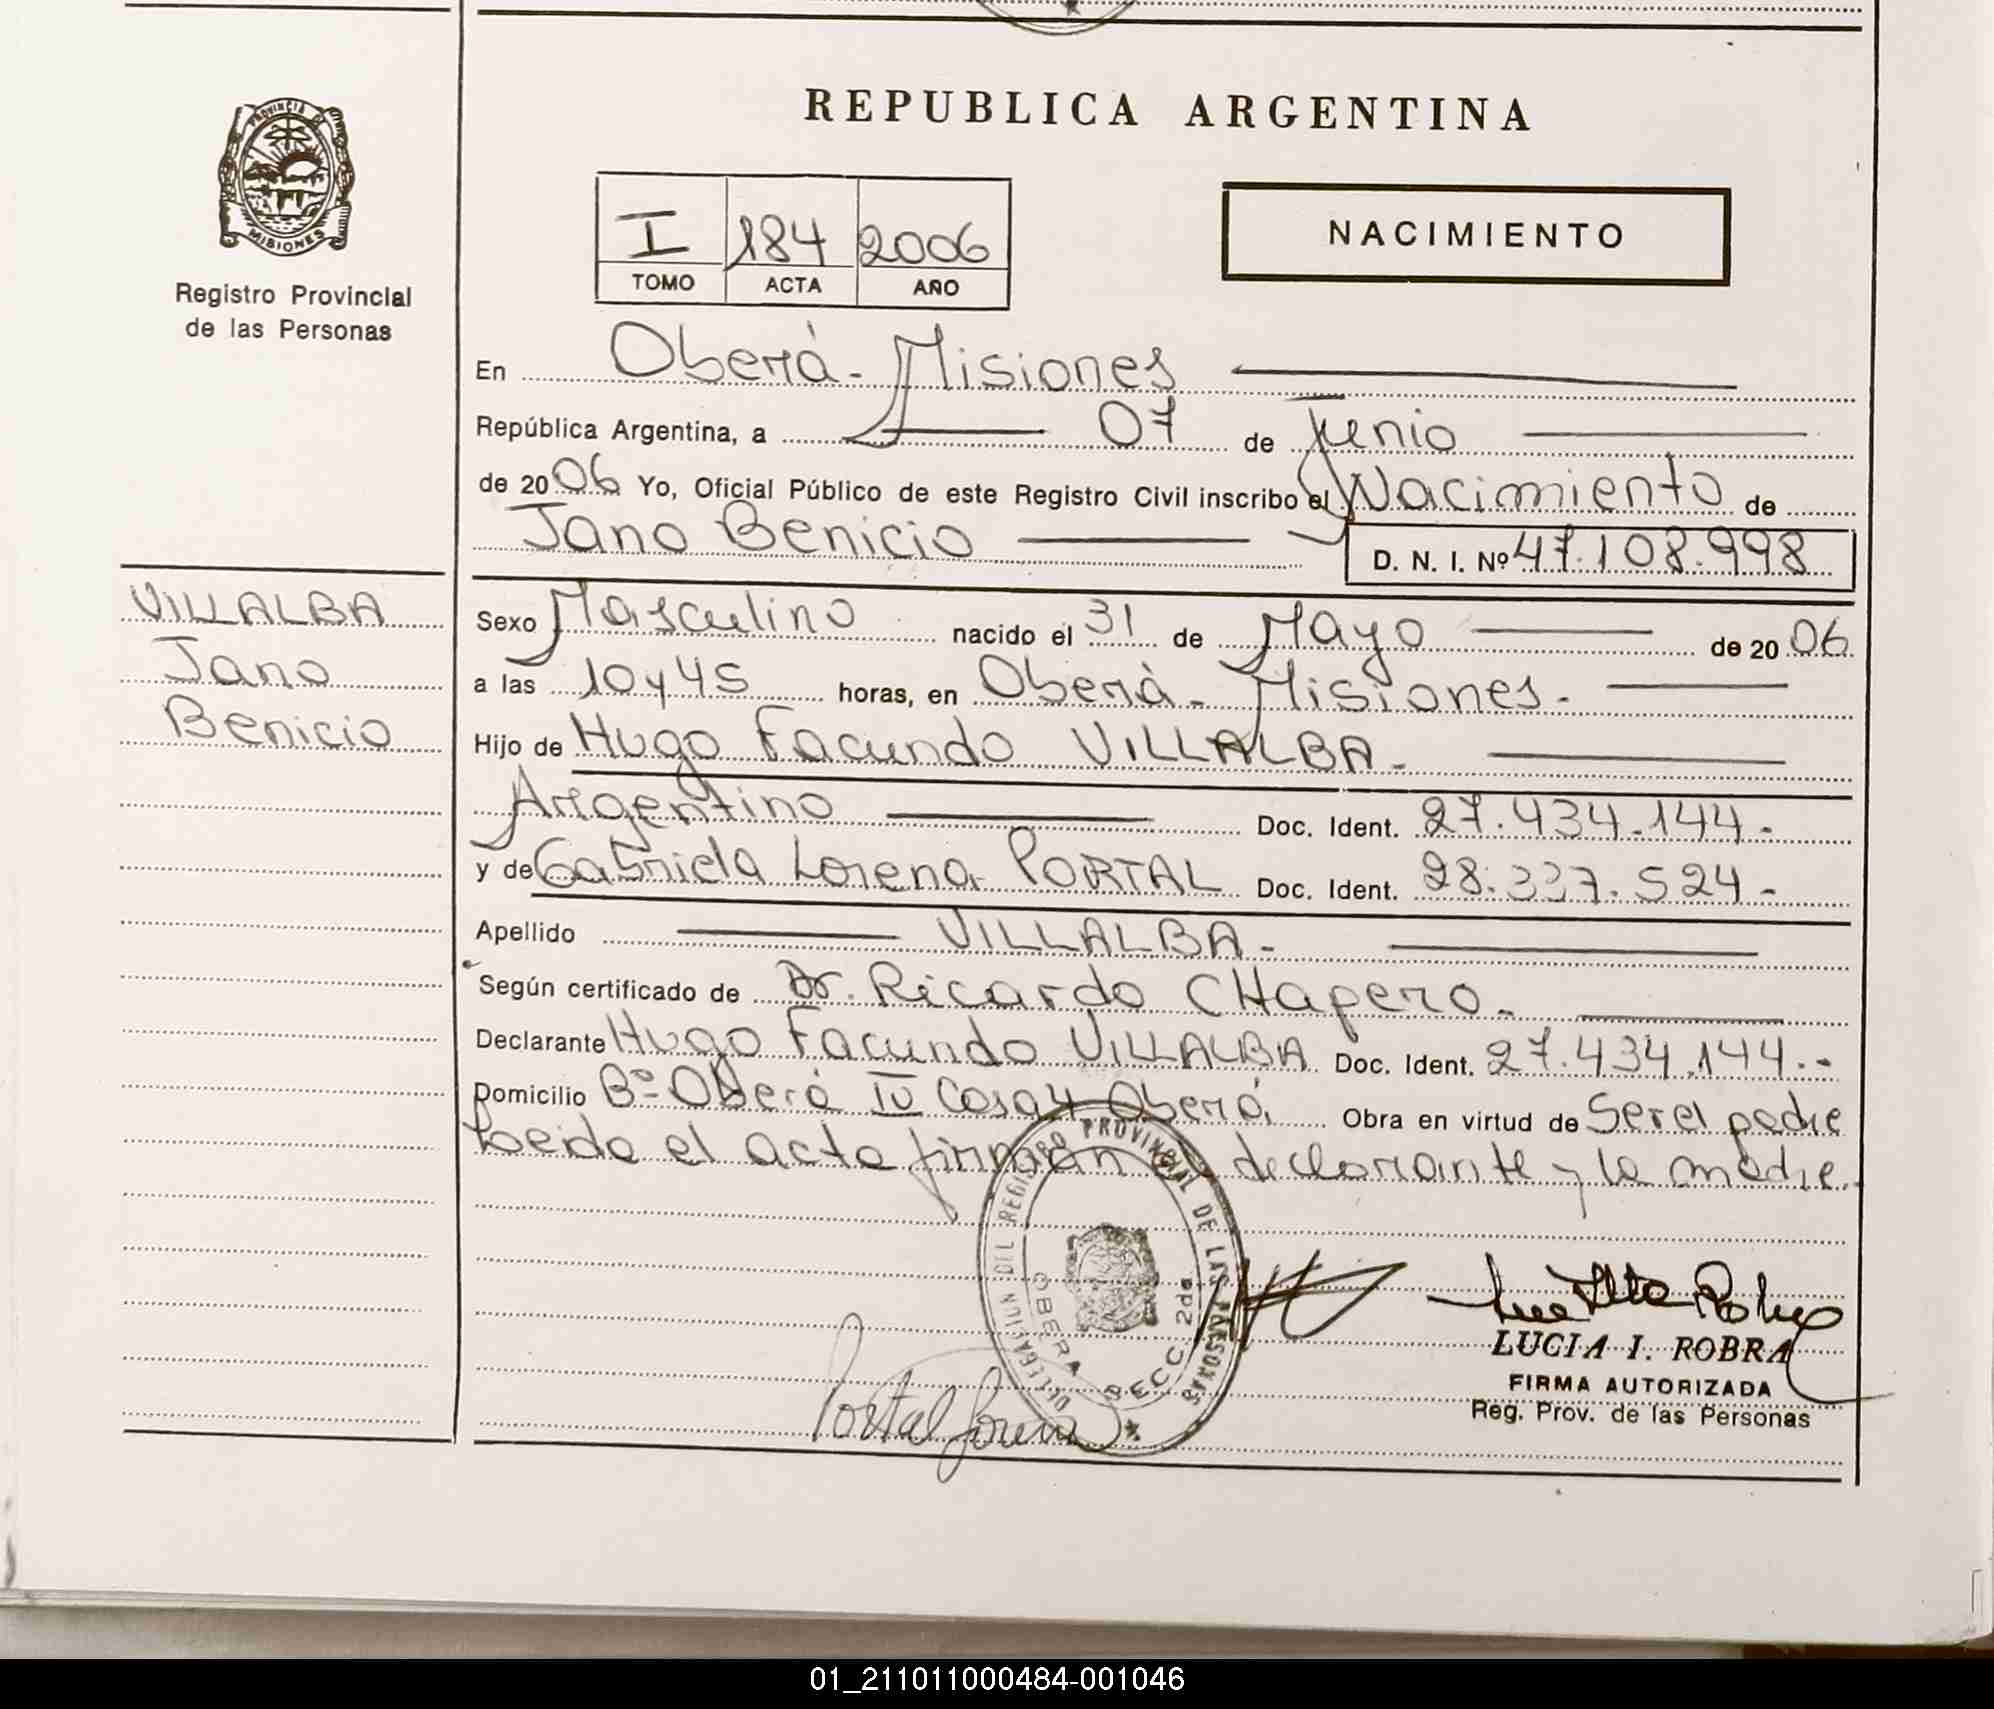 REPUBLICA ARGENTINA
PROVINCIA DE
MISIONES
Registro Provincial
de las Personas
I 184 2006
TOMO ACTA AÑO
NACIMIENTO
En Oberá - Misiones
República Argentina, a 07 de Junio
de 2006 Yo, Oficial Público de este Registro Civil inscribo el Nacimiento de
Jano Benicio D. N. I. Nº 47.108.998
VILLALBA
Jano
Benicio
Sexo Masculino nacido el 31 de Mayo de 2006
a las 10 y 45 horas, en Oberá - Misiones.
Hijo de Hugo Facundo VILLALBA.
Argentino Doc. Ident. 27.434.144.
y de Gabriela Lorena PORTAL Doc. Ident. 28.337.524.
Apellido VILLALBA.
Según certificado de Dr. Ricardo CHapero.
Declarante Hugo Facundo VILLALBA Doc. Ident. 27.434.144.-
Domicilio Bº Oberá IV Casa 4 Oberá Obra en virtud de Ser el padre
Leida el acta firman el declarante y la madre.
DELEGACION DEL REGISTRO PROVINCIAL DE LAS PERSONAS
OBERA SECC. 2da
Portal Lorena
LUCIA I. ROBRA
FIRMA AUTORIZADA
Reg. Prov. de las Personas
01_211011000484-001046